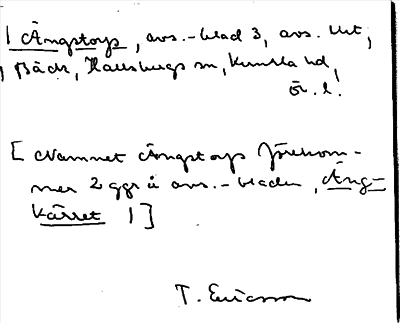 | Ängstorp, avs.-blad 3, avs. litt,
Bäck, Hallsbergs sn, Kumla hd,
Ör. l.
[Namnet Ängstorp förekom-
mer 2 ggr å avs.-bladen, Äng-
kärret |]
T. Ericsson